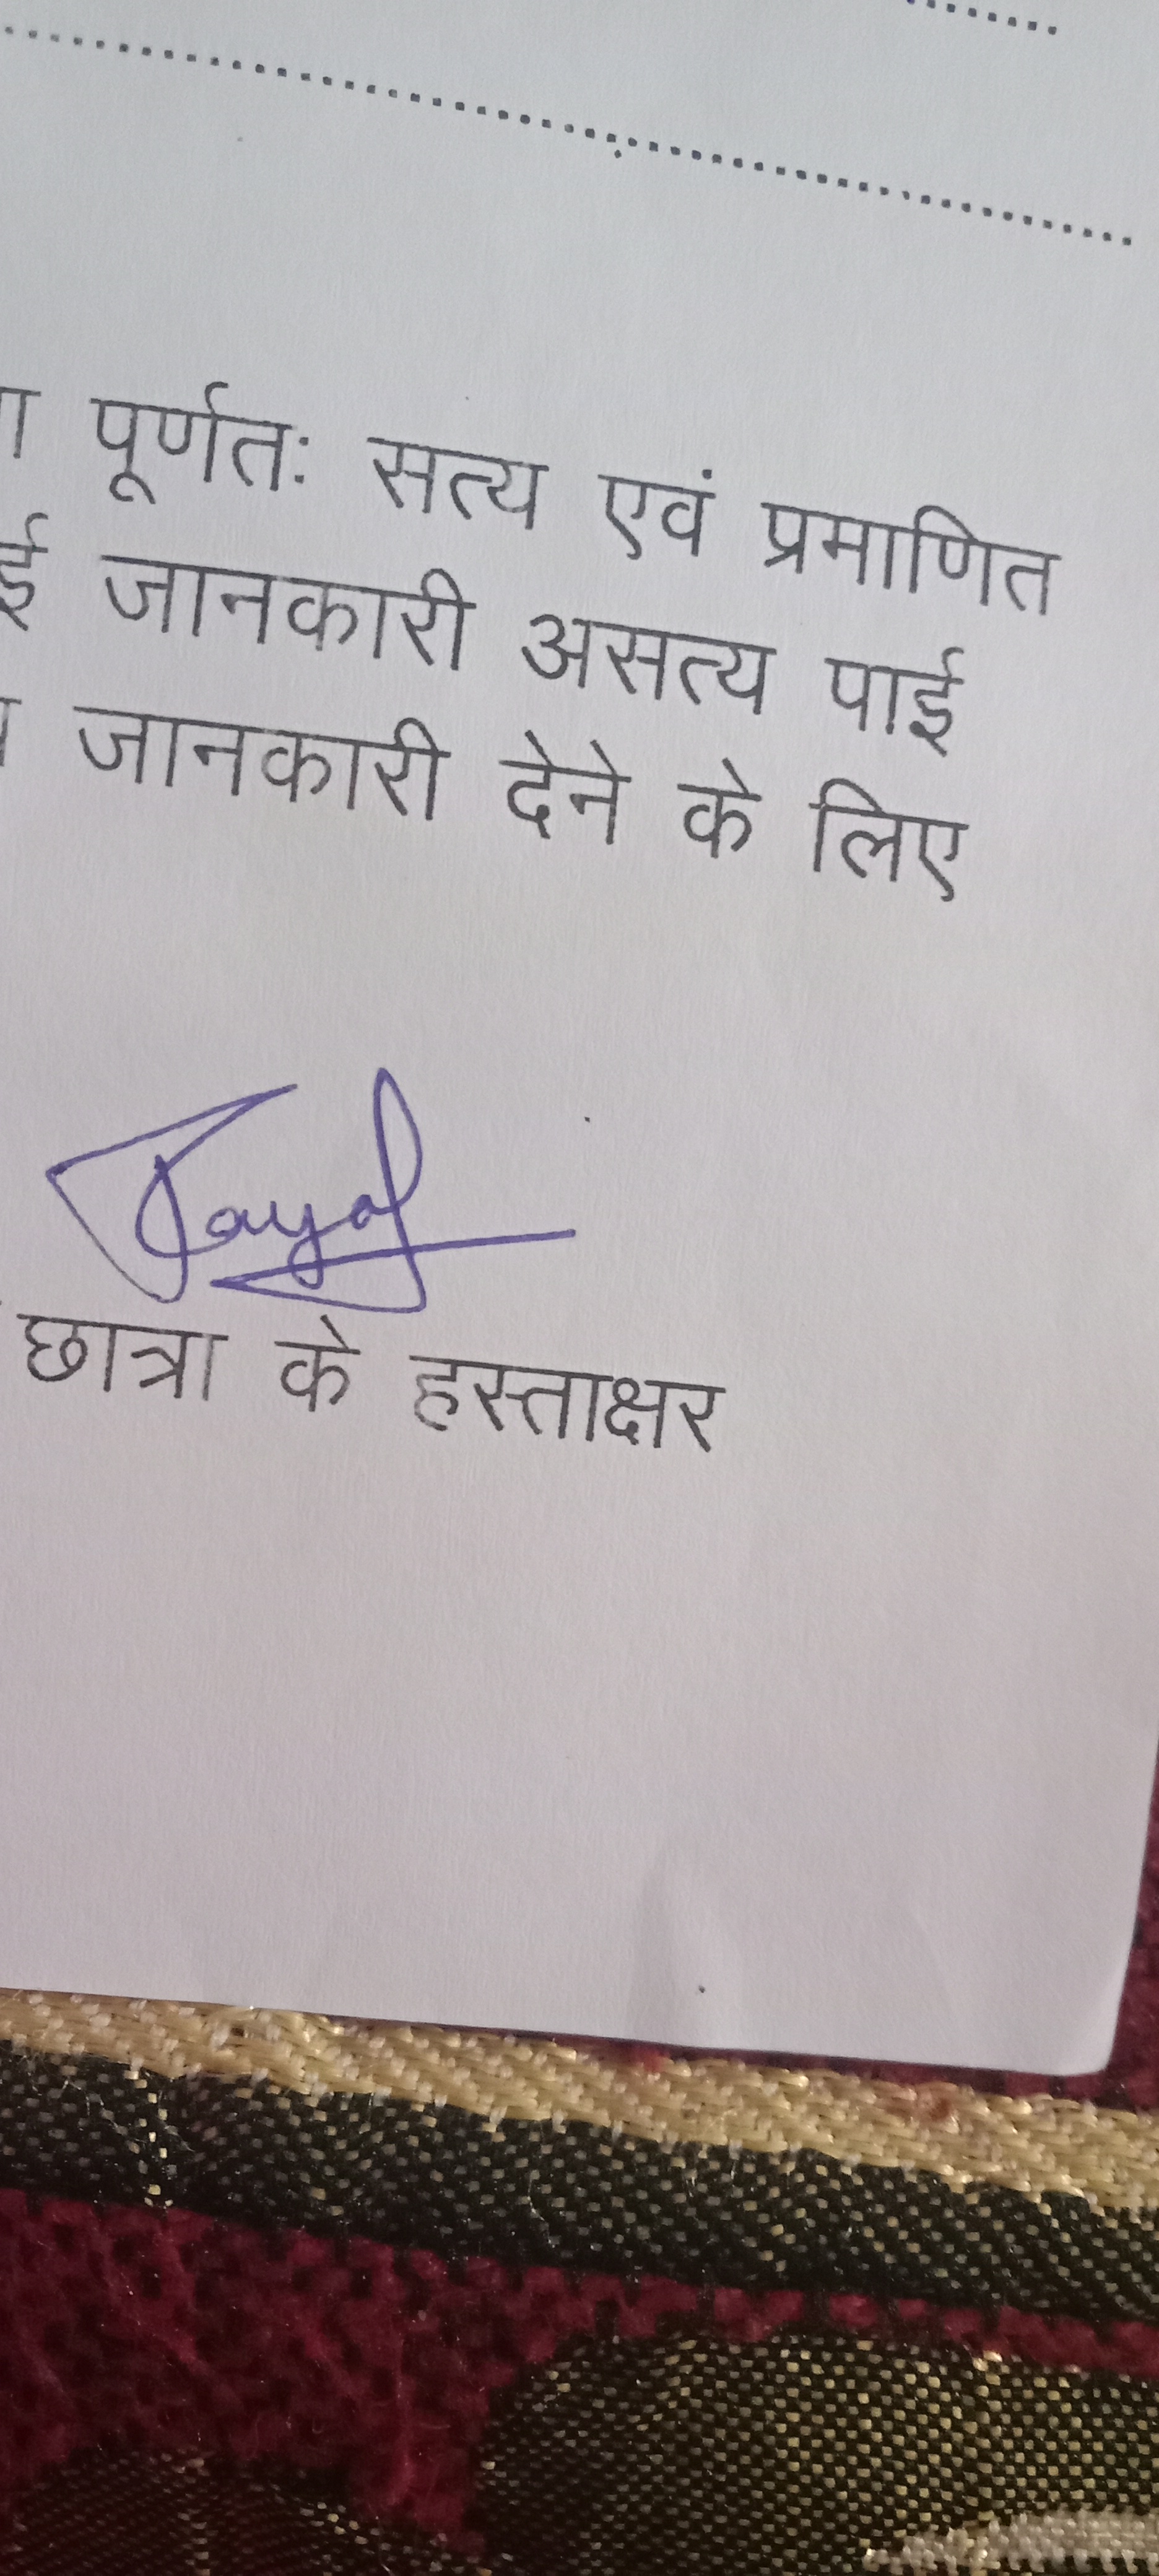 पूर्णत: सत्य एवं प्रमाणित
जानकारी असत्य पाई
जानकारी देने के लिए
छात्रा के हस्ताक्षर